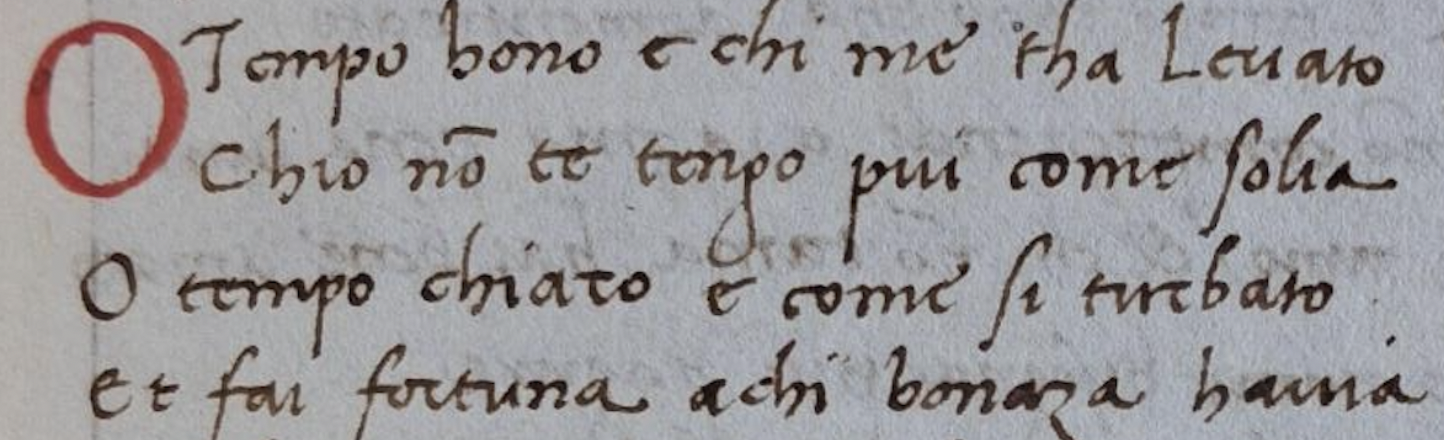 O Tempo bono e chi me tha Leuato
Chio nō te tengo pui come solia
O tempo chiaro e come si turbato
Et fai fortuna achi bonaza hauia